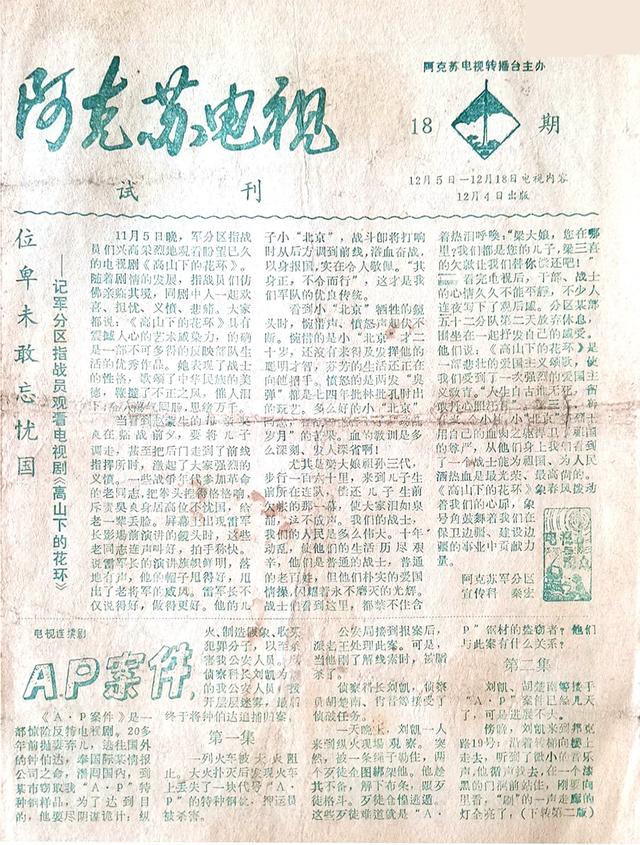 阿克苏电视转播台主办
阿克苏电视
18 期
试刊
12月5日—12月18日电视内容
12月4日出版
位卑未敢忘忧国
——记军分区指战员观看电视剧《高山下的花环》
11月5日晚，军分区指战
员们兴高采烈地观看盼望已久
的电视剧《高山下的花环》。
随着剧情的发展，指战员们仿
佛亲临其境，同剧中人一起欢
喜、担忧、义愤、悲痛。大家
都说：《高山下的花环》具有
震撼人心的艺术感染力，的确
是一部不可多得的反映部队生
活的优秀作品。她表现了战士
的性格，歌颂了中华民族的美
德，鞭挞了不正之风，催人泪
下，令人荡气回肠，思绪万千。
当看到赵蒙生的母亲吴
爽在临战前夕，要将儿子
调走，甚至把后门走到了前线
指挥所时，激起了大家强烈的
义愤。一些战争年代参加革命
的老同志，把拳头捏得格格响，
斥责吴爽身居高位不忧国，给
老一辈丢脸。屏幕上出现雷军
长影场前演讲的镜头时，这些
老同志连声叫好，拍手称快。
说雷军长的演讲旗帜鲜明，落
地有声，他的帽子甩得好，甩
出了老将军的威风。雷军长不
仅说得好，做得更好。他的儿
子小“北京”，战斗即将打响
时从后方调到前线，浴血奋战，
以身报国，实在令人敬佩。“其
身正，不令而行”，这才是我
们军队的优良传统。
看到小“北京”牺牲的镜
头时，惋惜声、愤怒声起伏不
断。惋惜的是小“北京”才二
十岁，还没有来得及发挥他的
聪明才智，芬芳的生活还正在
向他招手。愤怒的是两发“臭
弹”都是七四年批林批孔时出
的玩艺。多么好的小“北京”
岁月”的苦果。血的教训是多
么深刻、发人深省啊！
尤其是梁大娘祖孙三代，
步行一百六十里，来到儿子生
前所在连队，偿还儿子生前
欠账的那一幕，使大家泪如泉
涌，泣不成声。我们的战士，
我们的人民是多么伟大。十年
动乱，使他们的生活历尽艰
辛，他们是普通的战士，普通
的老百姓，但他们朴实的爱国
情操，闪耀着永不磨灭的光辉。
战士们看到这里，都禁不住含
着热泪呼唤：“梁大娘，您在哪
里？我们都是您的儿子，梁三喜
的欠款让我们替你偿还吧！”
看完重播后，干部、战士
的心情久久不能平静，不少人
连夜写下了观后感。分区某部
五十二分队第二天放弃休息，
围坐在一起抒发自己的感受。
他们说：《高山下的花环》是
一部悲壮的爱国主义颂歌，使
我们受到了一次强烈的爱国主
义教育。“人生自古谁无死，留
取丹心照汗青”。
用自己的血肉之躯捍卫了祖国
的尊严，从他们身上我们看到
了一个战士能为祖国、为人民
洒热血是最光荣、最高尚的。
《高山下的花环》象春风拨动
着我们的心扉，象
号角鼓舞着我们在
保卫边疆、建设边
疆的事业中贡献力
量。
阿克苏军分区
宣传科 秦宏
电视连续剧
AP案件
《A·P案件》是一
部惊险反特电视剧。20多
年前抛妻弃儿，逃往国外
的钟伯达，泰国际某情报
公司之命，潜回国内，到
某市窃取我“A·P”特
种钢样品，为了达到目
的，他要尽阴谋诡计：纵
火、制造假象、收买
犯罪分子，以至杀
害我公安人员。
侦察科长刘凯为
的我公安人员，拨
开层层迷雾，最后
终于将钟伯达追捕归案。
第一集
一列火车被大火阻
止。大火扑灭后发现火车
上丢失了一块代号“A·
P”的特种钢锭，押运员
被杀害。
公安局接到报案后，
派老王处理此案。可是，
当他刚了解线索时，被脂
杀了。
侦察科长刘凯，侦察
员胡楚南、肖箐等接受了
侦破任务。
一天晚上，刘凯一人
来到纵火现场观察。突
然，被一条绳子勒住，两
个歹徒企图绑架他。他趁
其不备，解下布条，跟歹
徒格斗。歹徒仓惶逃遁。
这些歹徒难道就是“A·
P”钢材的盗窃者？他们
与此案有什么关系？
第二集
刘凯、胡楚南等接手
“A·P”案件已经几天
了，可是进展不大。
傍晚，刘凯来到邦克
路19号；沿着转梯向楼上
走去，听到了微小的音乐
声，他循声找去，在一个漆
黑的门洞前站住，刚要向
里看，“刷”的一声走廊的
灯全亮了，（下转第二版）